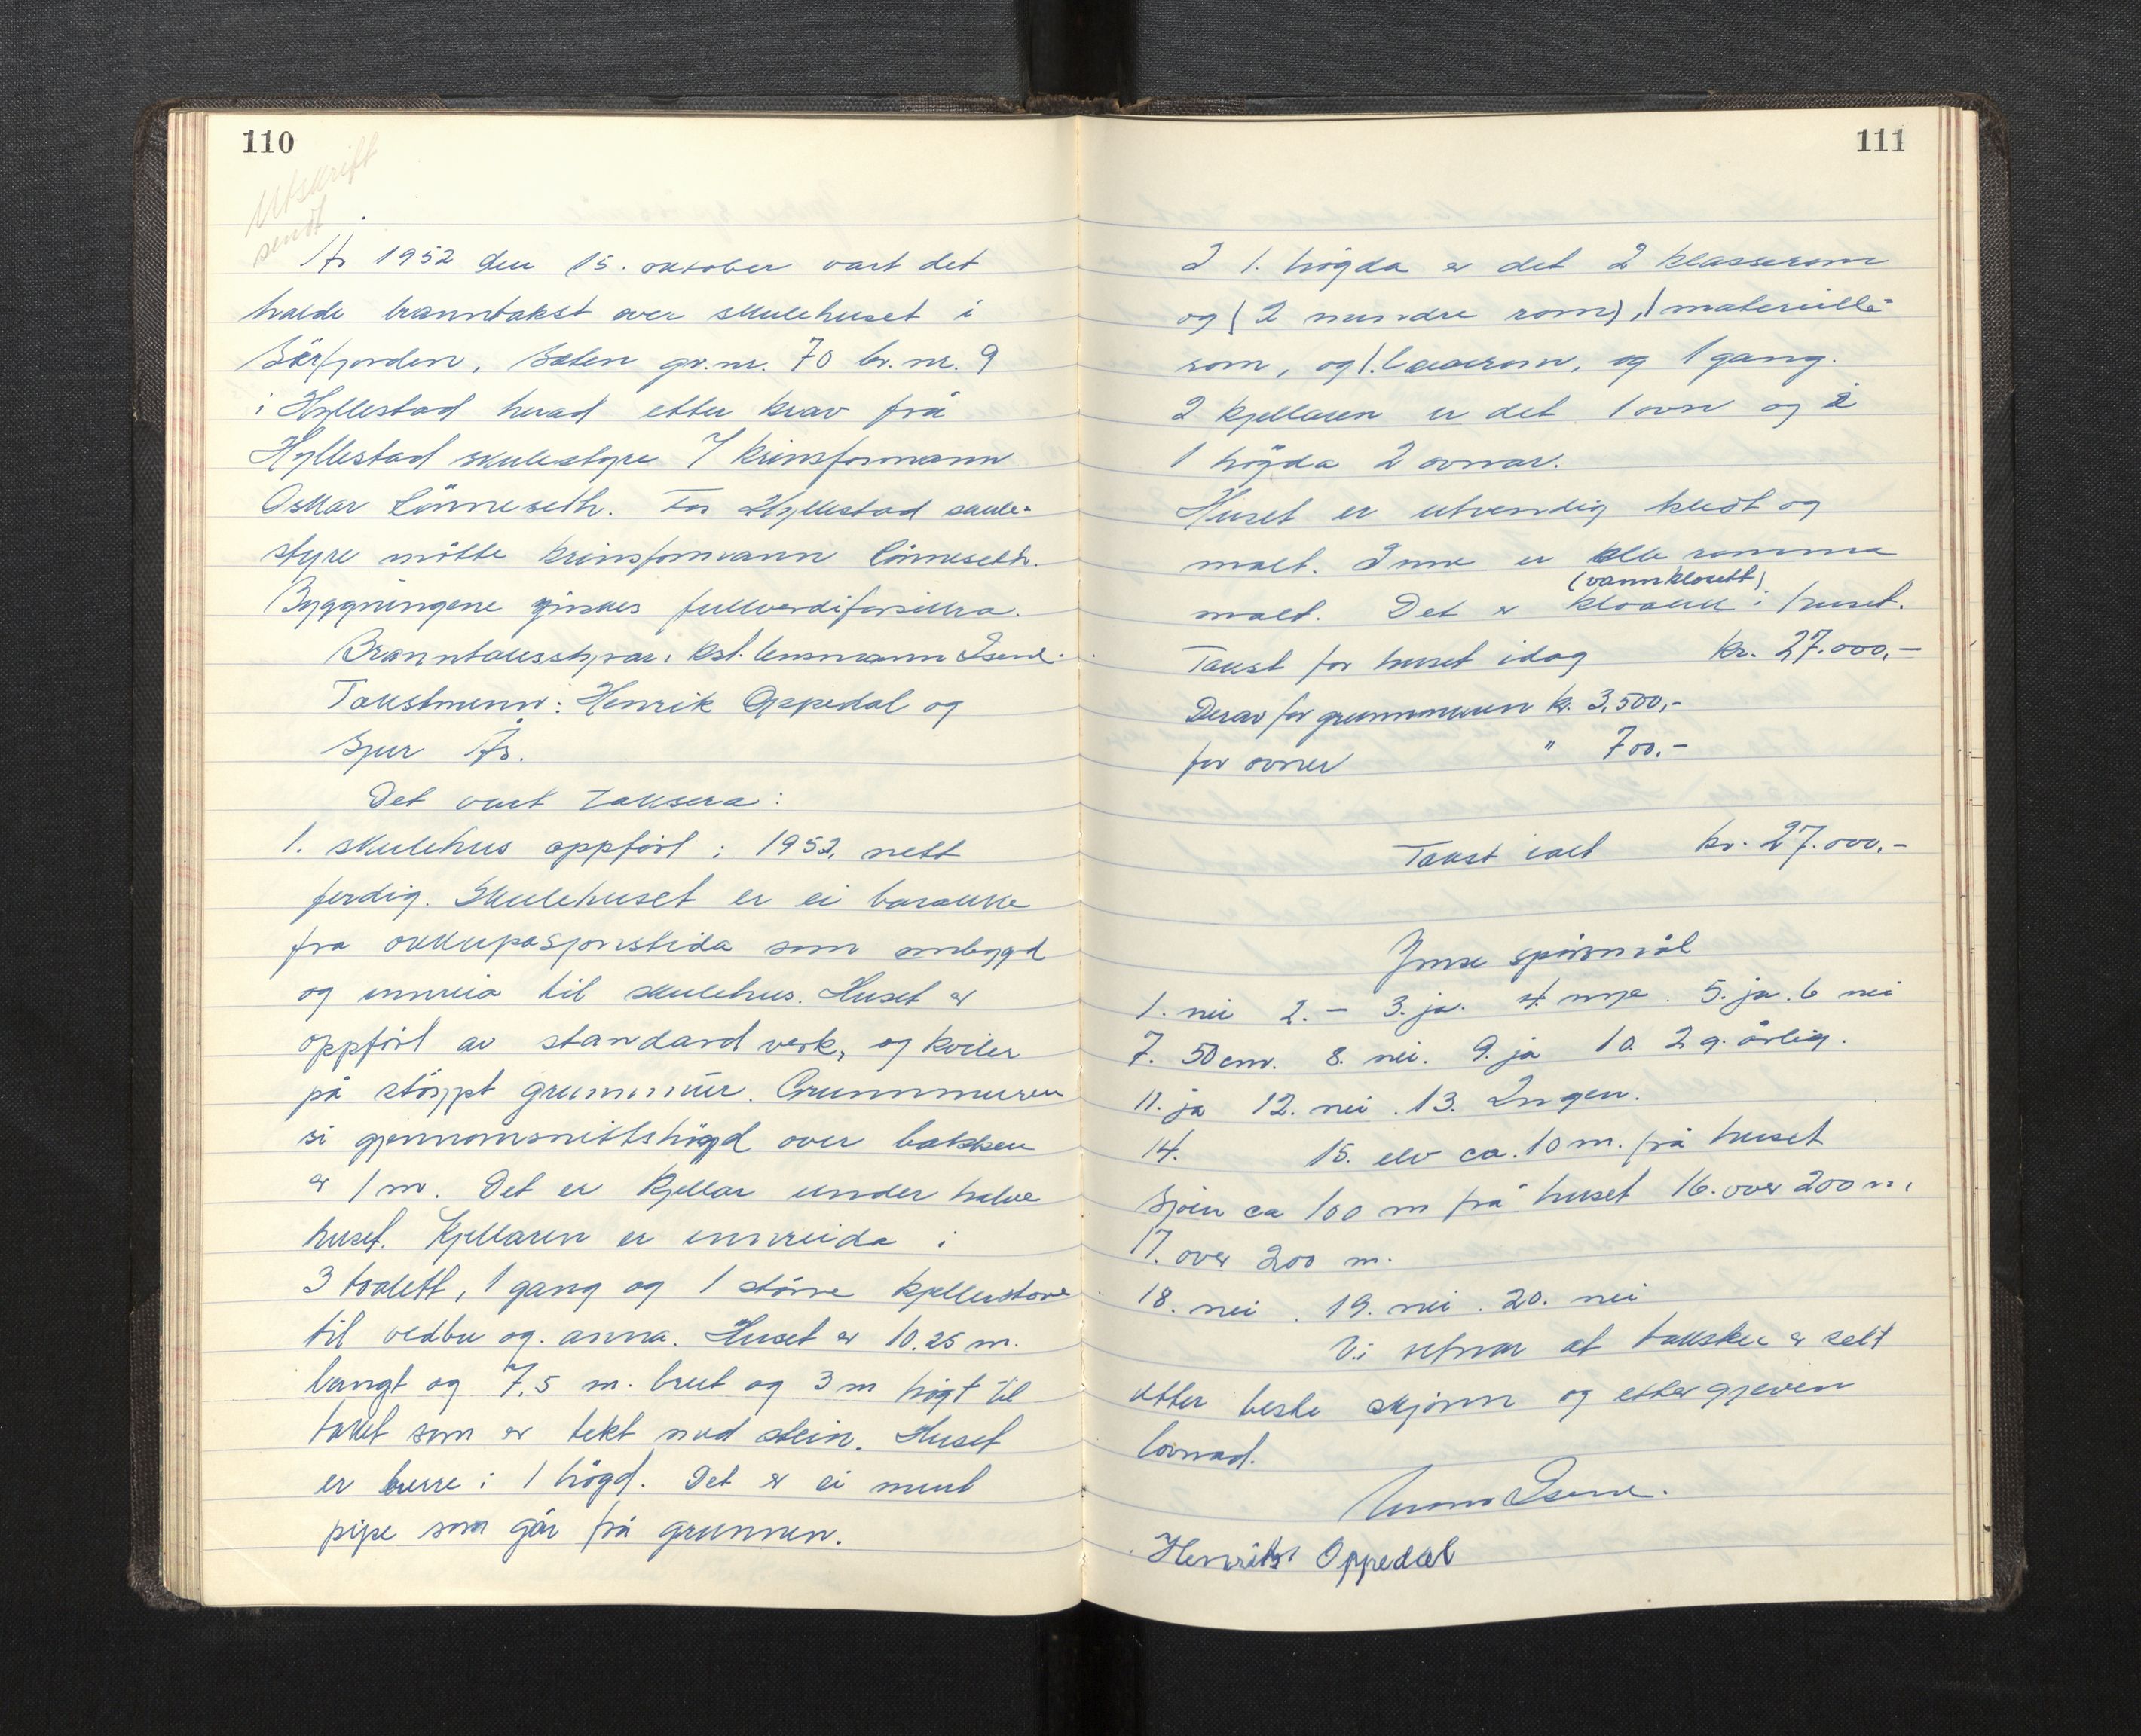 110
Utskrift
sendt
År 1952 den 15. oktober vart det
halde branntakst over skulehuset i
Sörfjorden, Sæten gr.nr. 70 br. nr. 9
i Hyllestad herad etter krav frå
Hyllestad skulestyre v/ krinsformann
Oskar Lönneseth. For Hyllestad skule-
styre mötte krinsformann Lönneseth.
Byggningene ynskes fullverdiforsikra.
Branntakstsstyrar, kst. lensmann Isene.
Takstmenn: Henrik Oppedal og
Sjur Ås.
Det vart taksera:
1. skulehus oppfört i 1952, nett
ferdig. Skulehuset er ei barakke
fra okkupasjonstida som ombygd
og innreia til skulehus. Huset er
oppfört av standard verk, og kviler
på stöypt grunnmur. Grunnmuren
si gjennomsnittshögd over bakken
er 1 m. Det er kjellar under halve
huset. Kjellaren er innreida i
3 toalett, 1 gang og 1 större kjellerstove
til vedbu og. anna. Huset er 10.25 m.
langt og 7,5 m. breit og 3 m högt til
taket som er tekt med stein. Huset
er berre i 1 högd. Det er ei murt
pipe som går frå grunnen.
111
I 1. högda er det 2 klasserom
og (2 mindre rom), 1 materiell-
rom, og 1. lærerom, og 1 gang.
I kjellaren er det 1 ovn og i
1 högda 2 ovnar.
Huset er utvendig kledt og
malt. Inne er alle romma
(vannklosett)
malt. Det er kloakk i huset.
Takst for huset idag kr. 27.000,-
Derav for grunnmuren kr. 3.500,-
for ovner " 700.-
Takst ialt kr. 27.000.-
Ymse spörsmål
1. nei 2. - 3. ja. 4. mye. 5. ja. 6 nei
7. 50 cm. 8. nei. 9. ja 10. 2 g. årlig.
11. ja 12. nei. 13. Ingen.
14. 15. elv ca. 10 m. frå huset
Sjöen ca 100 m frå huset 16. over 200 m,
17. over 200 m.
18. nei. 19. nei. 20. nei
Vi vitnar at taksten er sett
etter beste skjönn og etter gjeven
lovnad.
Isene.
Henrik Oppedal